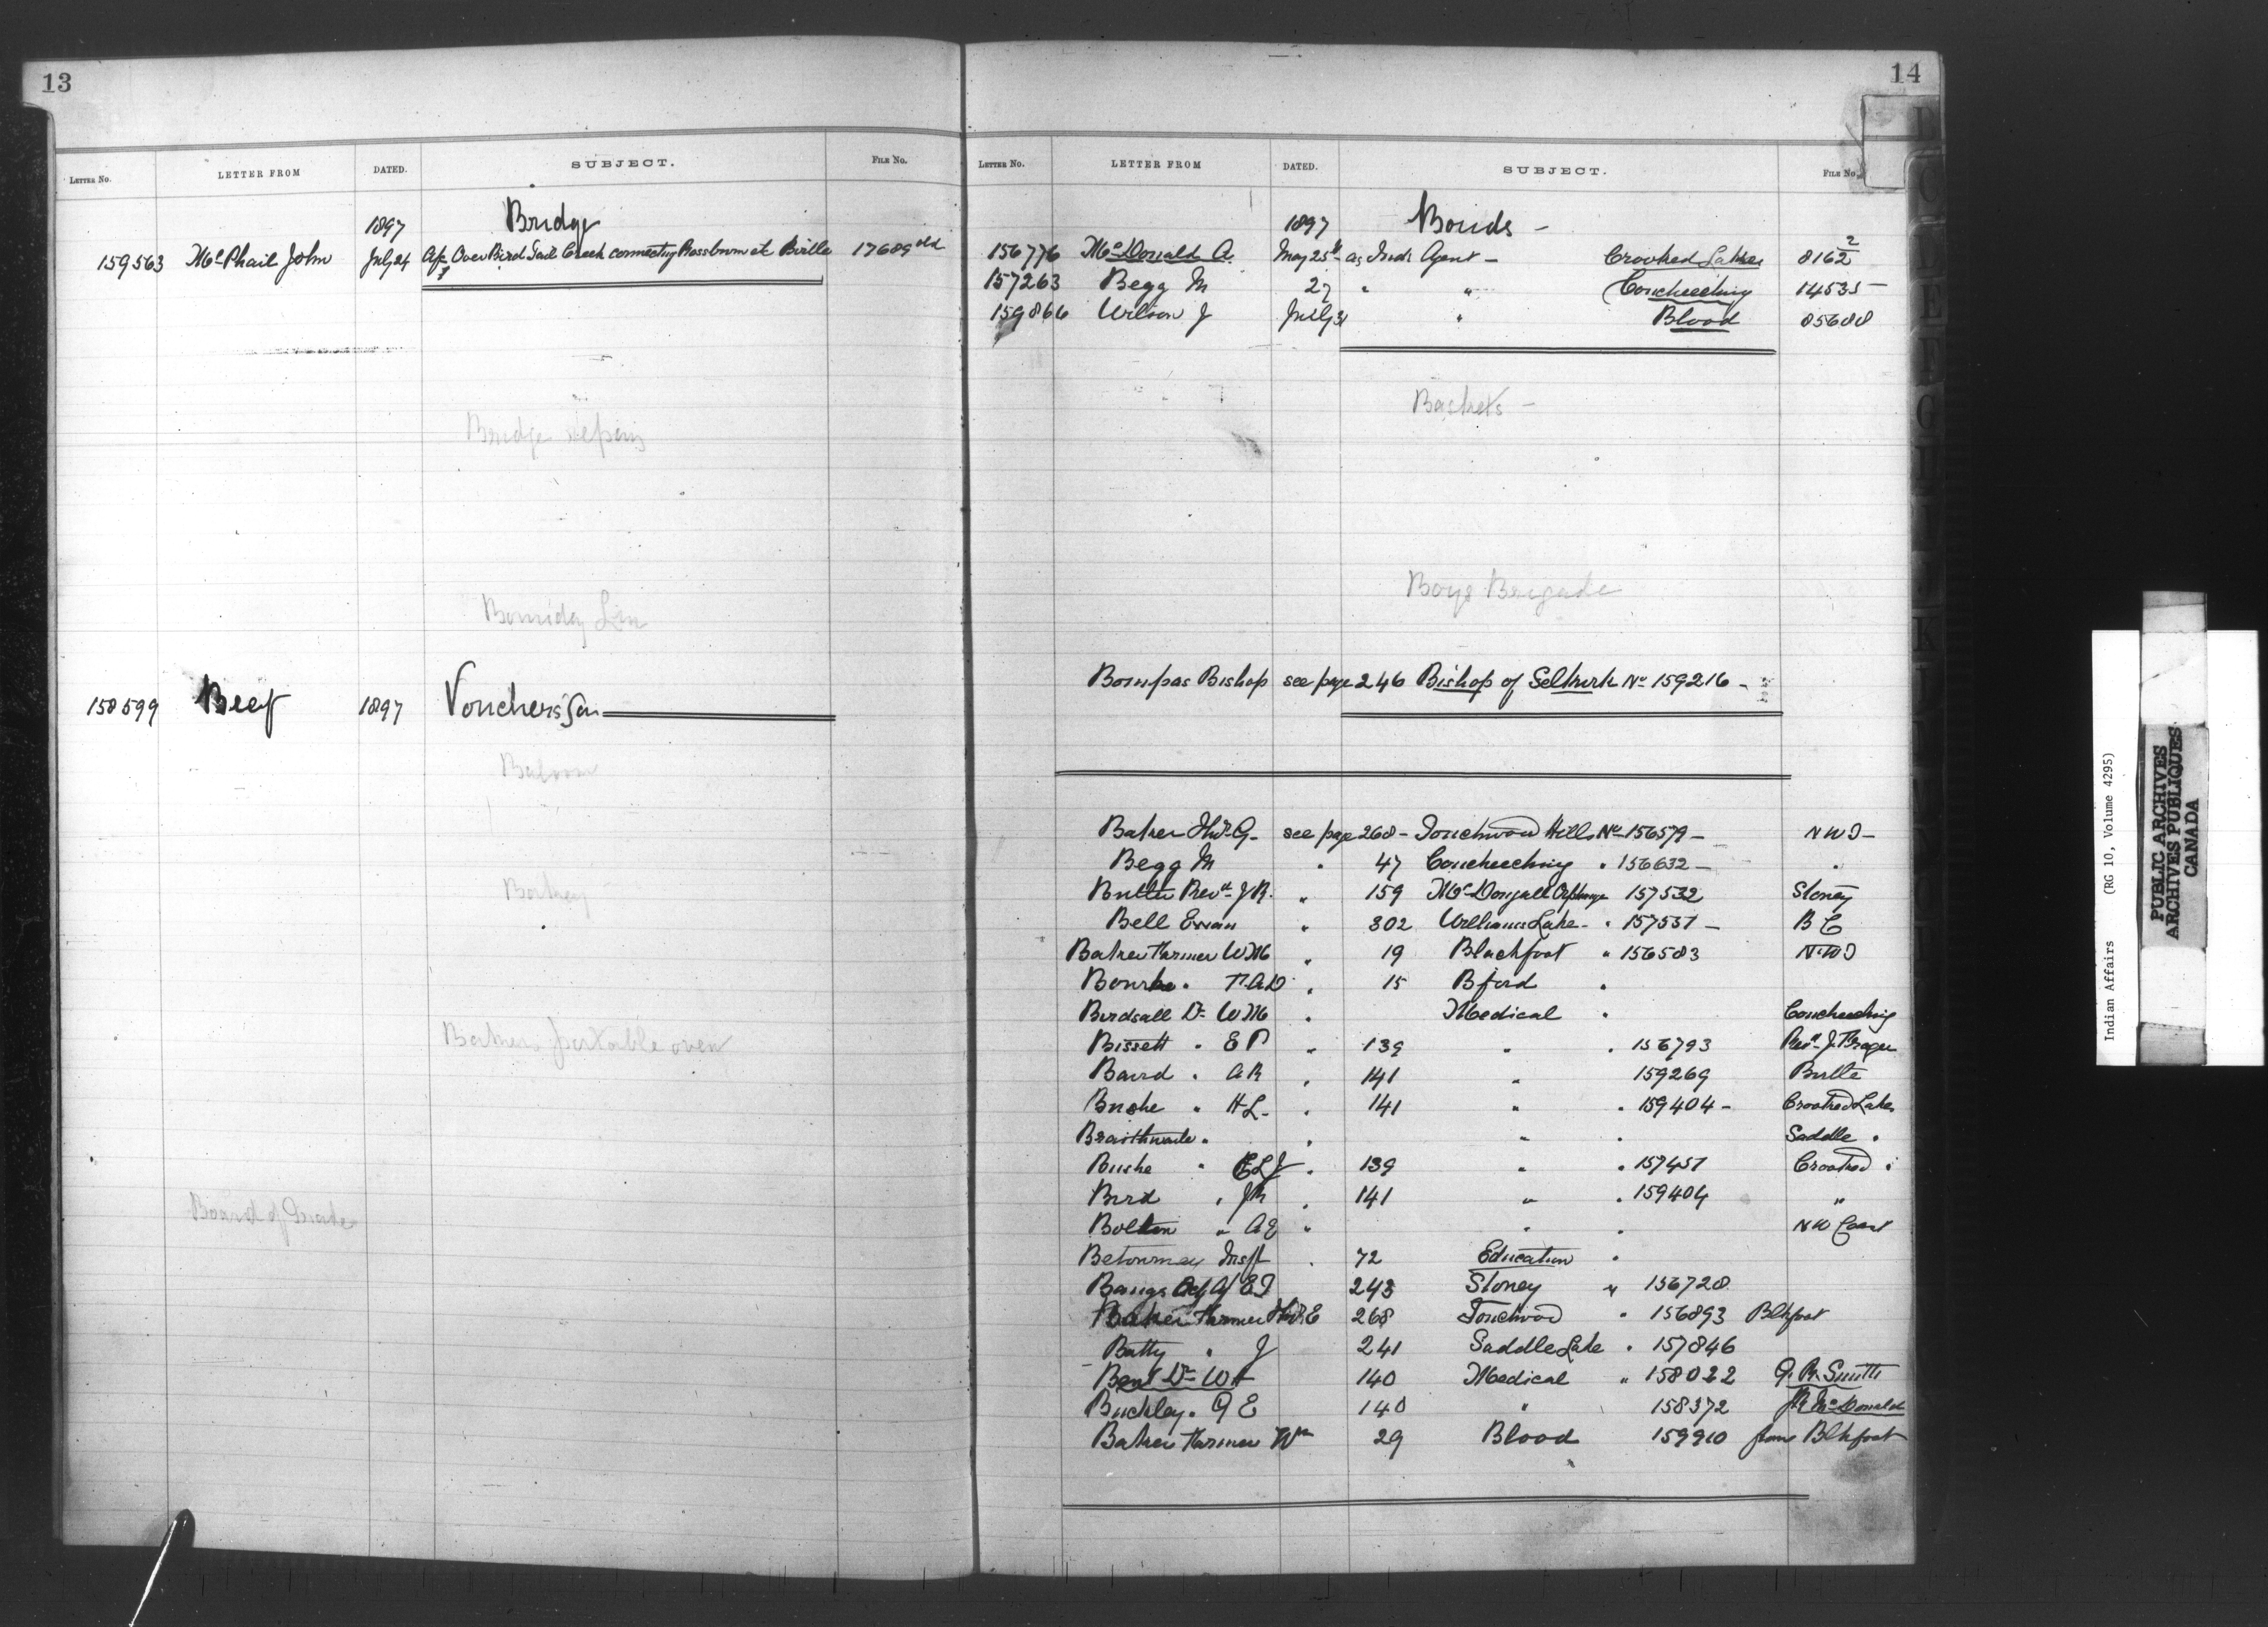 13
LETTER NO. LETTER FROM DATED. SUBJECT. FILE NO.
1897 Bridge
159563 McPhail John July 24 Over Bird Tail Creek connecting Rossburn at Birtle 17689 old
Bridge Repairs
Line
158599 Beef 1897 Vouchers for
Bakers portable oven
Board of Trade
14
LETTER NO. LETTER FROM DATED. SUBJECT. FILE NO.
1897 Bonds -
156776 McDonald A. May 25th as Ind. Agent - Crooked Lakes 8162 2
157263 Begg M 27 " " Coucheeching 14535 -
159866 Wilson J July 31 " Blood 85688
Baskets -
Boys Brigade
Bompas Bishop see page 246 Bishop of Selkirk No 159216 -
Baker G. see page 268 - Touchwood Hills No 156579 - NWT -
Begg M " 47 Coucheeching " 156632 - "
Butler Revd J R. " 159 McDougall Orphanage 157532 Stoney
Bell Ewan " 302 Williams Lake - " 157551 - B C
Baker Farmer WM " 19 Blackfoot " 156583 N.W.T
Bourke " " 15 Bford "
Birdsall Dr WM " Medical " Coucheeching
Bissett " E P " 139 " " 156793 Revd J. Fraser
Baird " A R " 141 " 159269 Birtle
Bushe " H L - " 141 " " 159404 - Crooked Lakes
Braithwaite " " " " Saddle "
Bushe " E L J " 139 " " 157451 Crooked "
Bird " J R " 141 " " 159404 "
Bolton " A E " " " NW Coast
Betournay Miss " 72 Education "
Bangs E J 243 Stoney " 156720
Baker Farmer E 268 Touchwood " 156893 Blkfoot
Batty " J 241 Saddle Lake " 157846
Beal Dr W H 140 Medical " 158022 Q. R. Smith
Buckley " G E 140 " 158372 McDonald
Baker Farmer Wm 29 Blood 159910 from Blkfoot
Indian Affairs (RG 10, Volume 4295)
PUBLIC ARCHIVES
ARCHIVES PUBLIQUES
CANADA